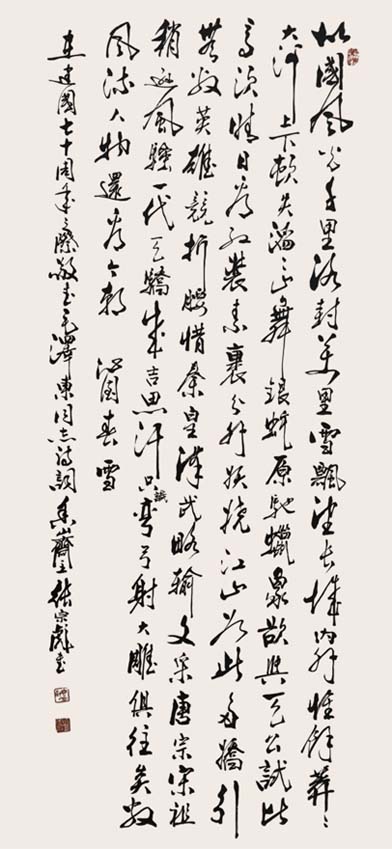 北國風光千里冰封萬里雪飄望長城內外惟餘莽〻
大河上下頓失滔〻山舞銀蛇原馳蠟象欲與天公試比
高須晴日看紅裝素裹分外妖嬈江山如此多嬌引
無數英雄競折腰惜秦皇漢武略輸文采唐宗宋祖
稍遜風騷一代天驕成吉思汗只識彎弓射大雕俱往矣數
風流人物還看今朝 沁園春雪
在建國七十周年之際敬書毛澤東同志詩詞 齋主張宗彪書